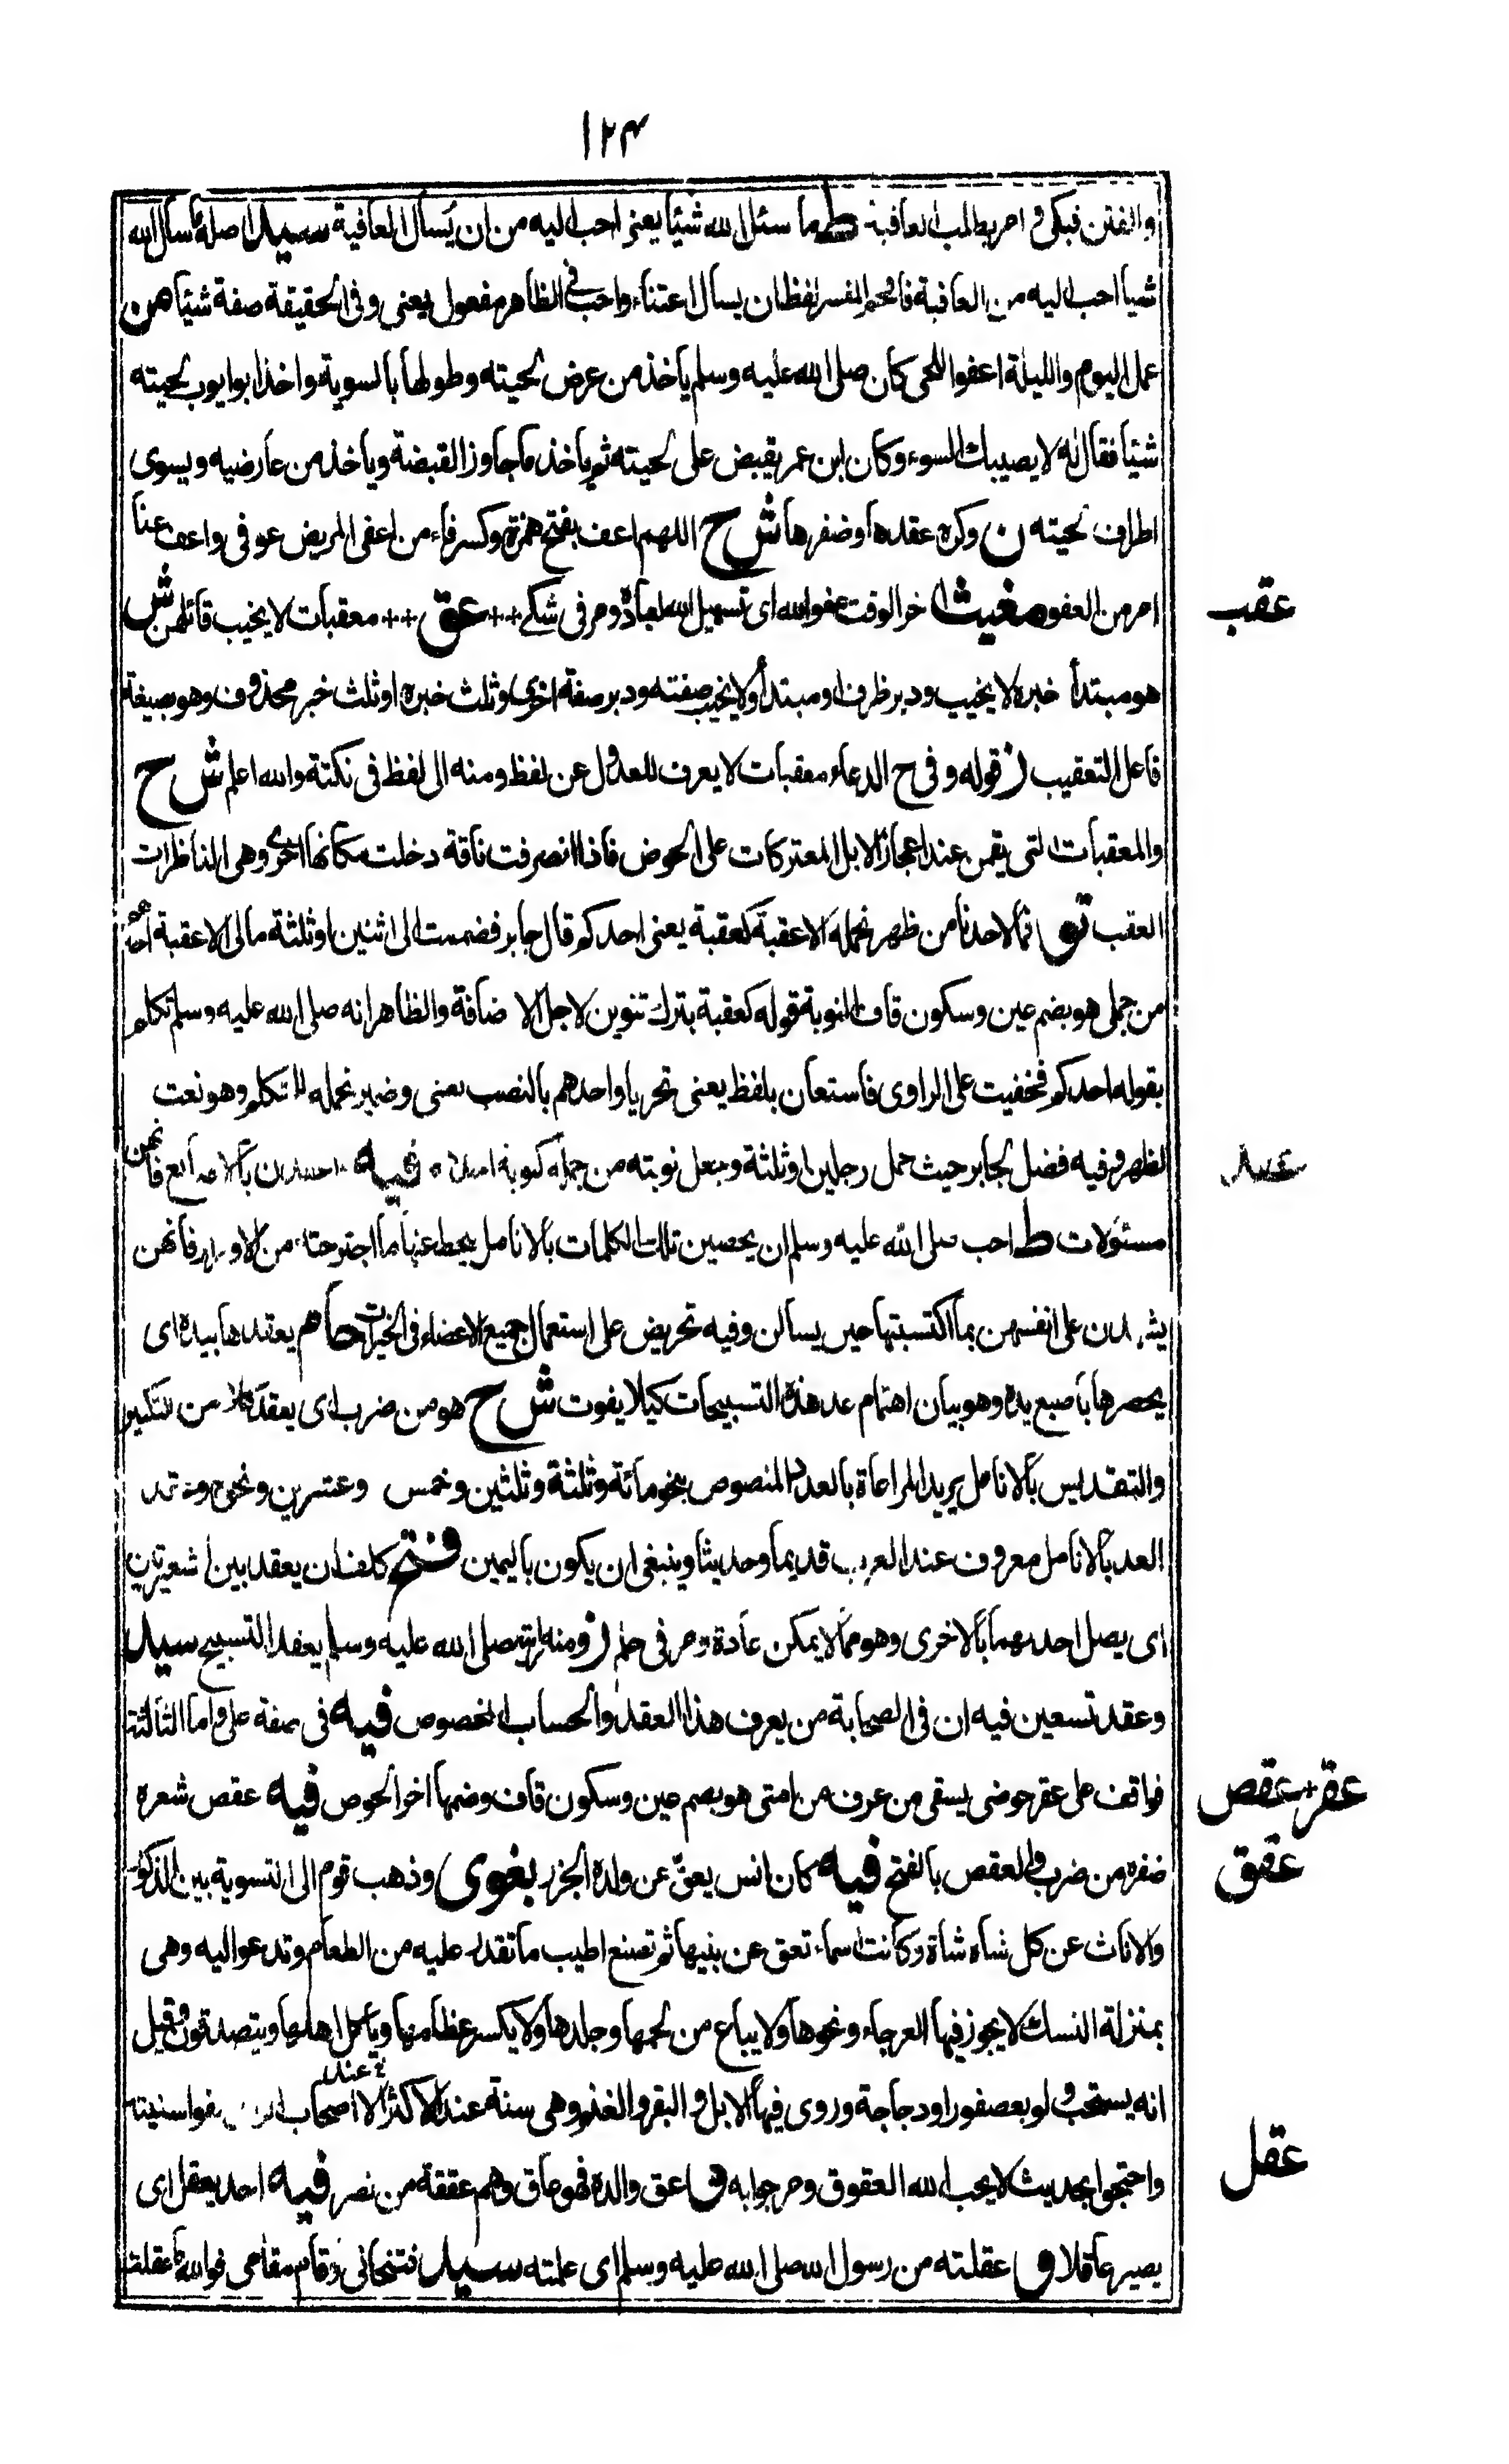 ١٢٤
والفتن فبكى و امر بطلب العافية ط ما سئل الله شيئا يعنى احب اليه من ان يُسأل العافية سيد اصله ما سأل الله
شيأ احب اليه من العافية فاقحم المفسر لفظ ان يسأل اعتناء واحب فى الظاهر مفعول يعنى وفى الحقيقة صفة شيئا هن
عمل اليوم والليلة اعفوا اللحى كان صلى الله عليه وسلم يأخذ من عرض لحيته وطولها بالسوية واخذ ابو ايوب لحيته
شيئا فقال له لا يصيبك السوء وكان ابن عمر يقبض على لحيته ثم يأخذ ما جاوز القبضة ويأخذ من عارضيه ويسوى
اطراف لحيته ن وكره عقدها وضفرها ش ح اللهم اعف بفتح همزة وكسر فاء من اعفى المريض عوفى واعف عنا
امر من العفو مغيث اخر الوقت عفو الله اى تسهيل الله لعباده ومر فى شكى ++ عق ++ معقبات لا يخيب قائلهن ش
هو مبتدأ خبره لا يخيب ودبر ظرف او مبتدأ ولا يخيب صفته ودبر صفة اخرى وثلث خبره او ثلث خبر محذوف وهو بصيغة
فاعل التعقيب ز قوله وفى ح الدعاء معقبات لا يعرف للعدول عن لفظ ومنه الى لفظ فى نكتة والله اعلم ش ح
والمعقبات التى يقمن عند اعجاز الابل المعتركات على الحوض فاذا انصرفت ناقة دخلت مكانها اخرى وهى الناظرات
العقب تو فما لاحدنا من ظهر نحمله الا عقبة كعقبة يعنى احدكم قال جابر فضممت الى اثنين او ثلثة مالى الا عقبة احدهم
من جملى هو بضم عين وسكون قاف النوبة قوله كعقبة بترك تنوين لاجل الاضافة والظاهر انه صلى الله عليه وسلم تكلم
بقوله احدكم فخفيت على الراوى فاستعان بلفظ يعنى تحريا واحدهم بالنصب يعنى وضمير نحمله للمتكلم وهو نعت
لظهر وفيه فضل لجابر حيث حمل رجلين او ثلثة وجعل نوبته من جمله كنوبة فيه بالاصابع فانهن
مسئولات ط احب صلى الله عليه وسلم ان يحصين تلك الكلمات بالانامل يحط عنها ما اجترحته من الاوزار فانهن
يشهدن على انفسهن بما اكتسبتها حين يسألن وفيه تحريض على استعمال جميع الاعضاء فى الخيرات هم يعقدها بيده اى
يحصرها باصبع يده وهو بيان اهتمام عد هذه التسبيحات كيلا يفوت ش ح هو من ضرب اى يعقد من التكبير
والتقديس بالانامل يريد المراعاة بالعدد المنصوص بنحو مائة وثلثة وثلثين وخمس وعشرين ونحوه
العد بالانامل معروف عند العرب قديما وحديثا وينبغى ان يكون باليمين فتح كلف ان يعقد بين شعيرتين
اى يصل احدهما بالاخرى وهو مما لا يمكن عادة ومر فى حلم ز ومنه صلى الله عليه وسلم يعقد التسبيح سيد
وعقد تسعين فيه ان فى الصحابة من يعرف هذا العقد والحساب المخصوص فيه فى صفة على واما الثالثة
فواقف على عقر حوضى يسقى من عرف من امتى هو بضم عين وسكون قاف وضمها اخر الحوض فيه عقص شعره
ضفره من ضرب والعقص بالفتح فيه كان انس يعق عن ولده الجزر بغوى وذهب قوم الى التسوية بين الذكور
والاناث عن كل شاه شاة وكانت اسماء تعق عن بنيها ثم تصنع اطيب ما تقدر عليه من الطعام وتدعو اليه وهى
بمنزلة النسك لا يجوز فيها العرجاء ونحوها ولا يباع من لحمها وجلدها ولا يكسر عظامها ويأكل اهلها ويتصدقون وقيل
انه يستحب ولو بعصفور او دجاجة وروى فيها الابل و البقر والغنم وهى سنة عند الاكثر الا عند اصحاب سنيته
واحتجوا بحديث لا يحب الله العقوق ومر جوابه ق اعق والده فهو عاق وهم عققة من نصر فيه احد يعقل اى
يصير عاقلا و عقلته من رسول الله صلى الله عليه وسلم اى علمته سيد فتنحانى وقام مقامى فوالله ما عقلت
عقب
عقد
عقر+عقص
عقق
عقل